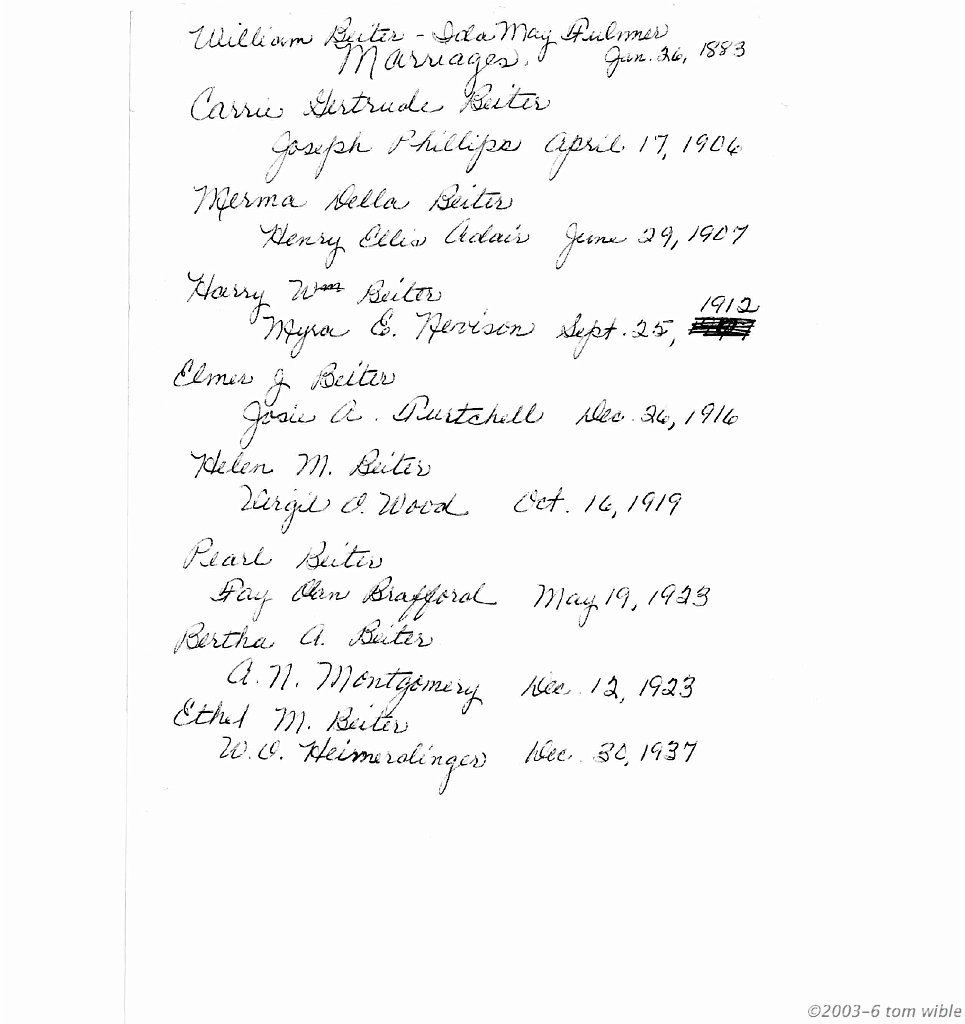 William Beiter - Ida May Fulmer
Marriages. Jan. 26, 1883
Carrie Gertrude Beiter
Joseph Phillips April 17, 1906
Merma Della Beiter
Henry Ellis Adair June 29, 1907
Harry Wm Beiter
1912
Myra E. Nevison Sept. 25,
Elmer J Beiter
Josie A. Turtchell Dec. 26, 1916
Helen M. Beiter
Virgil O. Wood Oct. 16, 1919
Pearl Beiter
Fay Brafford May 19, 1923
Bertha A. Beiter
A. N. Montgomery Dec. 12, 1923
Ethel M. Beiter
W. O. Heimerdinger Dec. 30, 1937
©2003-6 tom wible